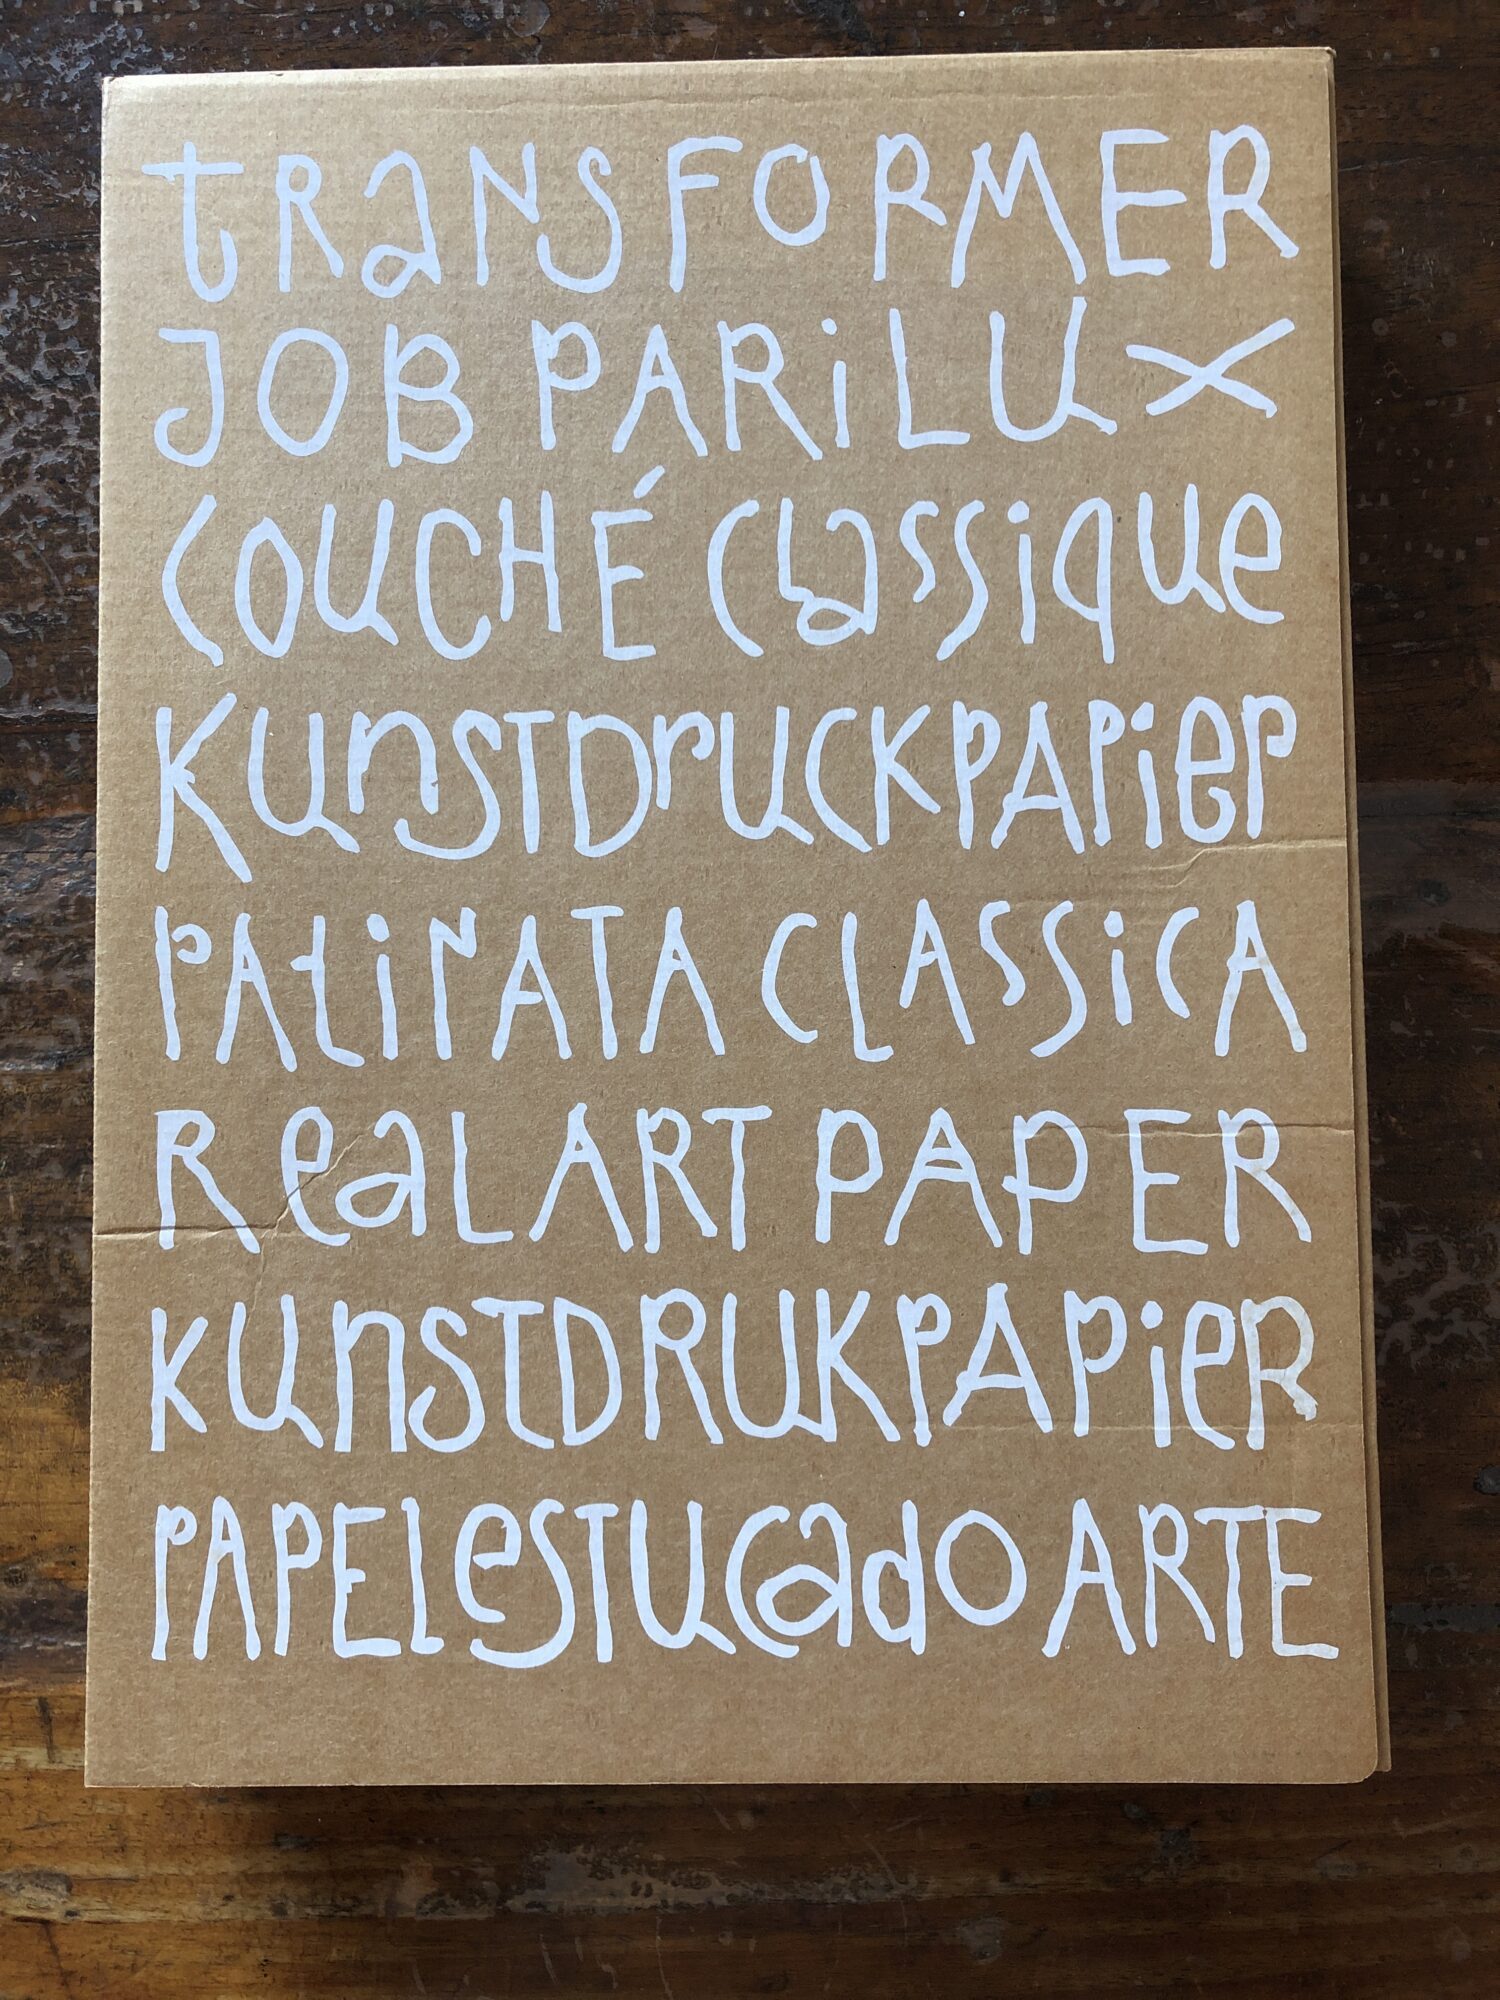 tRaNSFORMER
JOB PARiLUX
COUCHÉ Classique
KunstDruckpapier
PAtinATA CLASSiCA
ReaL ART PAPER
KunstDRUKPAPieR
PAPEL eSTUCado ARTE